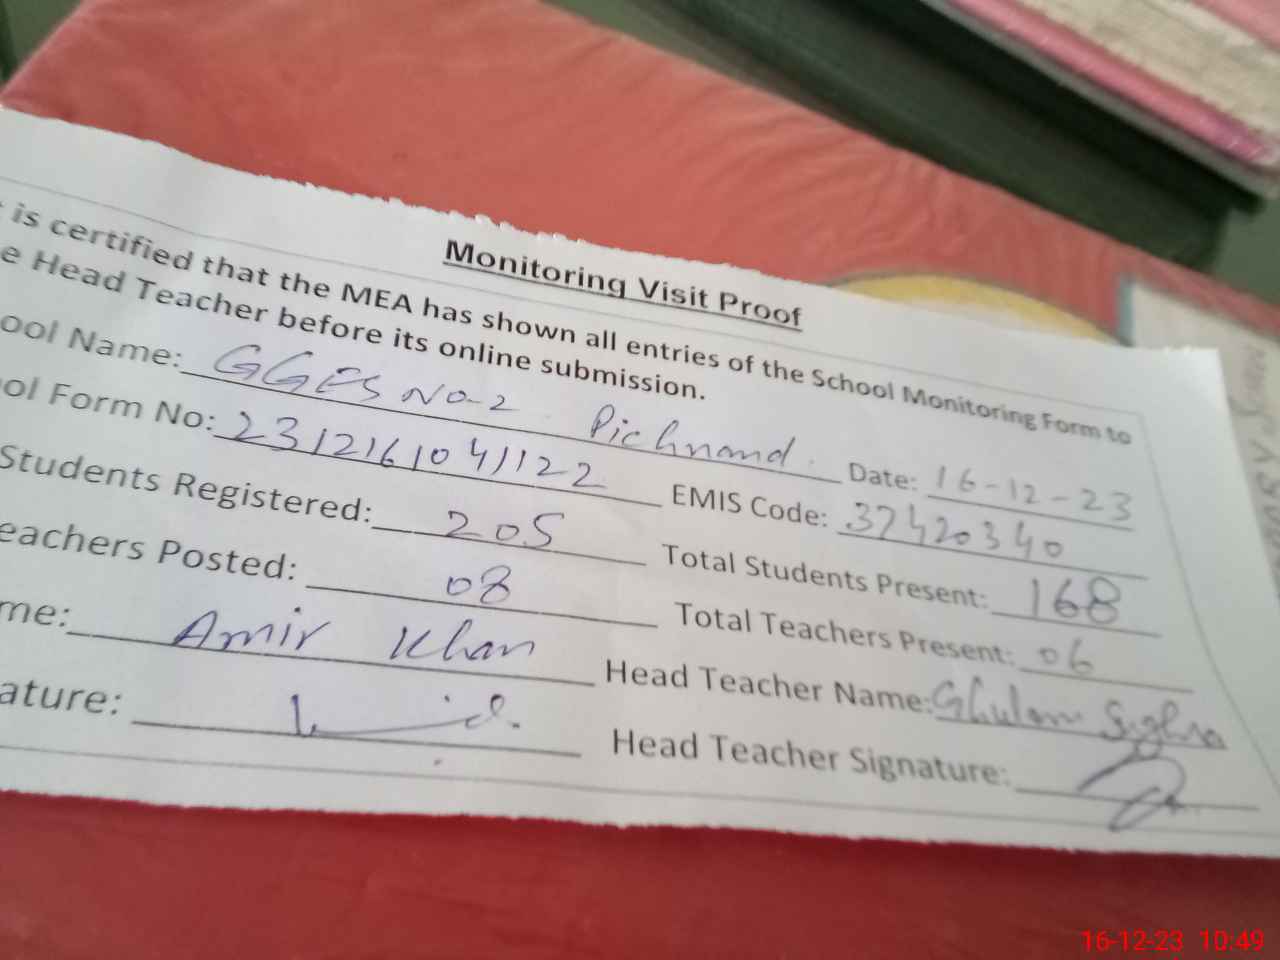 Monitoring Visit Proof
is certified that the MEA has shown all entries of the School Monitoring Form to
e Head Teacher before its online submission.
ool Name: GGES No-2 Pichnand. Date: 16-12-23
ol Form No: 2312161041122 EMIS Code: 37420340
Students Registered: 205 Total Students Present: 168
eachers Posted: 08 Total Teachers Present: 06
me: Amir Khan Head Teacher Name: Ghulam Sughra
ature: Head Teacher Signature:
16-12-23 10:49